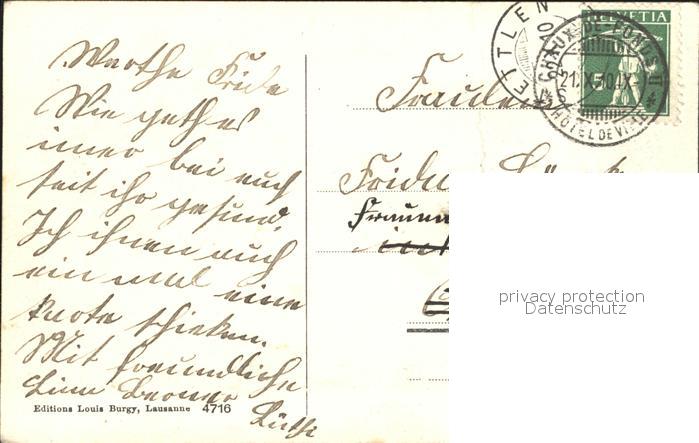 Werthe Frida
Wie geth es
imer bei euch
seit ihr gesund.
Ich ihnen auch
ein mal eine
karte schicken.
Mit freundliche
Editions Louis Burgy, Lausanne 4716
Fraulein
Frida
HELVETIA
5
CHAUX-DE-FONDS
HÔTEL DE VILLE
ETTLEN
privacy protection
Datenschutz